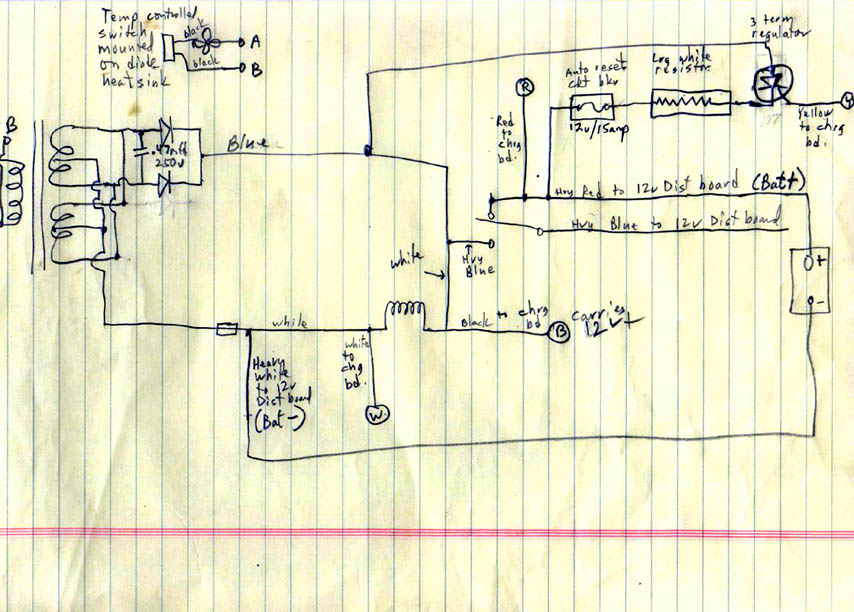 Temp controlled
switch
mounted
on diode
heatsink
black
black
A
B
3 term
regulator
Auto reset
ckt bkr
12v/15amp
Lrg white
resistr.
R
Red
to
chrg
bd.
Yellow
to chrg
bd.
B
.47mfd
250v
Blue
Hvy Red to 12v Dist board (Batt+)
Hvy Blue to 12v Dist board
Hvy
Blue
white
+
-
while
white
to
chg
bd.
W
Black to chrg
bd
B
carries
12v+
Heavy
white
to 12v
Dist board
(Bat-)